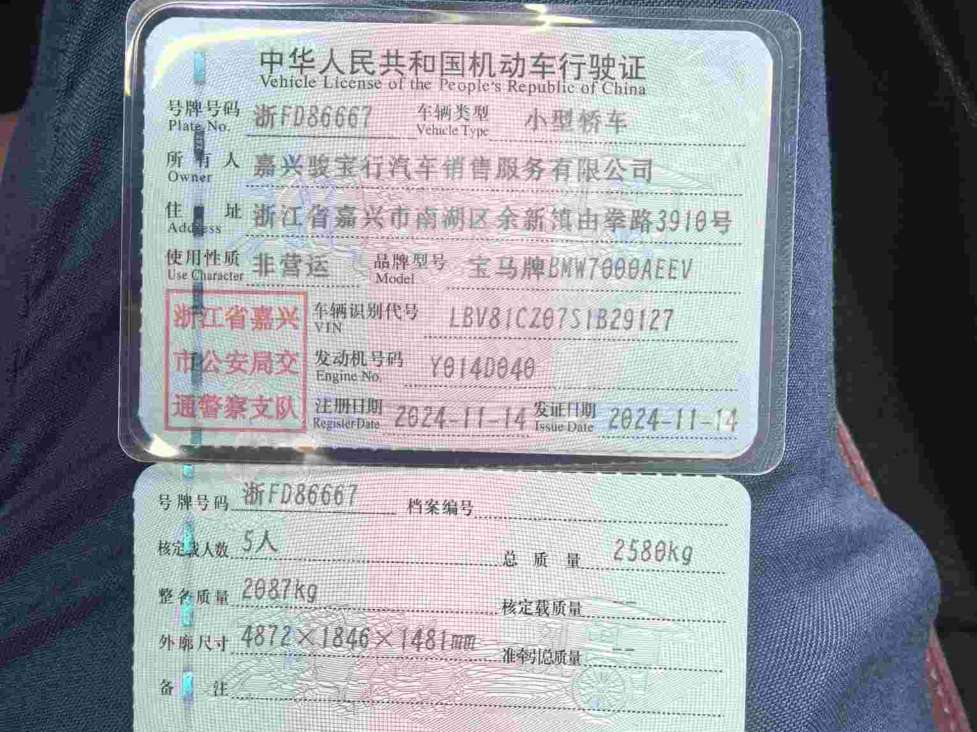 中华人民共和国机动车行驶证
Vehicle License of the People's Republic of China
号牌号码 浙FD86667 车辆类型 小型轿车
Plate No. Vehicle Type
所有人 嘉兴骏宝行汽车销售服务有限公司
Owner
住址 浙江省嘉兴市南湖区余新镇由拳路3910号
Address
使用性质 非营运 品牌型号 宝马牌BMW7000AEEV
Use Character Model
浙江省嘉兴 车辆识别代号 LBV81CZ07S1B29127
VIN
市公安局交 发动机号码 Y014D040
Engine No.
通警察支队 注册日期 2024-11-14 发证日期 2024-11-14
Register Date Issue Date
号牌号码 浙FD86667 档案编号
核定载人数 5人 总质量 2580kg
整备质量 2087kg 核定载质量 --
外廓尺寸 4872×1846×1481mm 准牵引总质量 --
备注